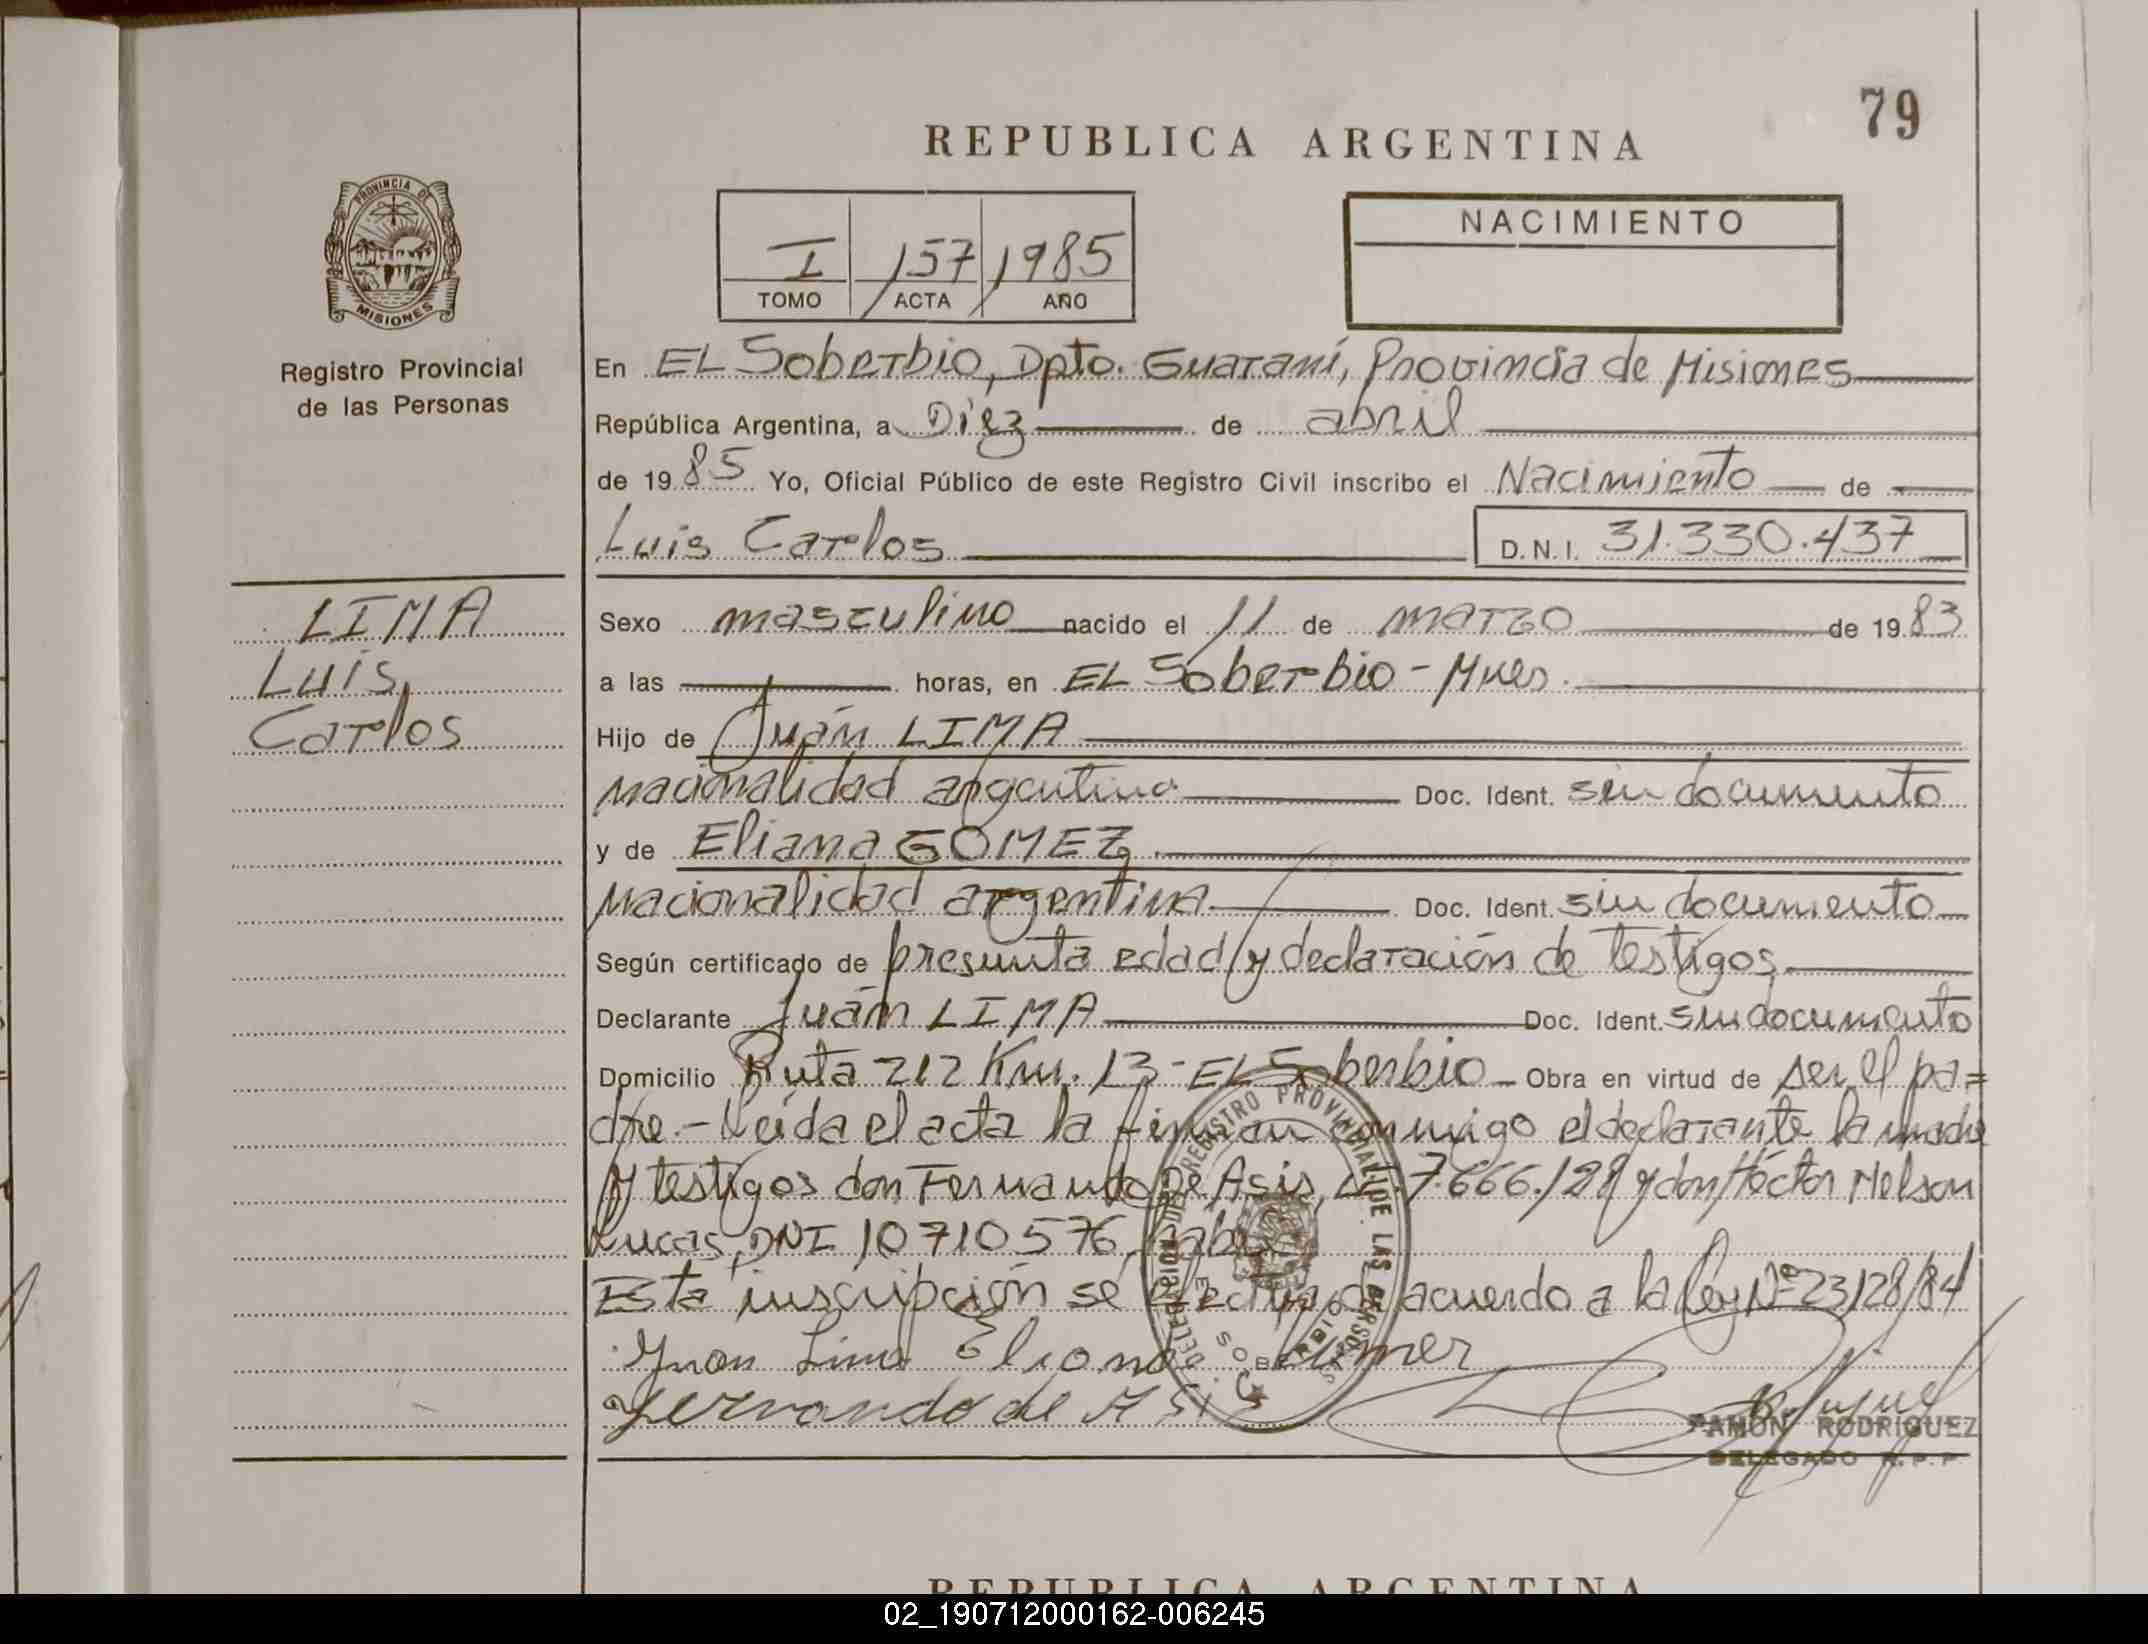 79
REPUBLICA ARGENTINA
PROVINCIA DE
MISIONES
Registro Provincial
de las Personas
I 157 1985
TOMO ACTA AÑO
NACIMIENTO
En EL Soberbio, Dpto. Guaraní, Provincia de Misiones
República Argentina, a Diez de abril
de 1985 Yo, Oficial Público de este Registro Civil inscribo el Nacimiento de
Luis Carlos D.N.I. 31.330.437
LIMA
Luis
Carlos
Sexo masculino nacido el 11 de marzo de 1983
a las horas, en EL Soberbio - Mnes.
Hijo de Juan LIMA
nacionalidad argentina Doc. Ident. sin documento
y de Eliana GOMEZ
nacionalidad argentina Doc. Ident. sin documento
Según certificado de presunta edad y declaración de testigos
Declarante Juan LIMA Doc. Ident. sin documento
Domicilio Ruta 212 Km. 13 - EL Soberbio - Obra en virtud de ser el pa=
dre.- Leída el acta la firman conmigo el declarante la madre
y testigos don Fernando De Asis, 7.666.128 y don Héctor Nelson
Lucas, DNI 10710576,
Esta inscripción se efectua de acuerdo a la Ley Nº 23128/84
Juan Lima Eliana
Fernando de Asi
DELEGACION DE REGISTRO PROVINCIAL DE LAS PERSONAS
EL SOBERBIO
RAMON RODRIGUEZ
DELEGADO R.P.P
REPUBLICA ARGENTINA
02_190712000162-006245